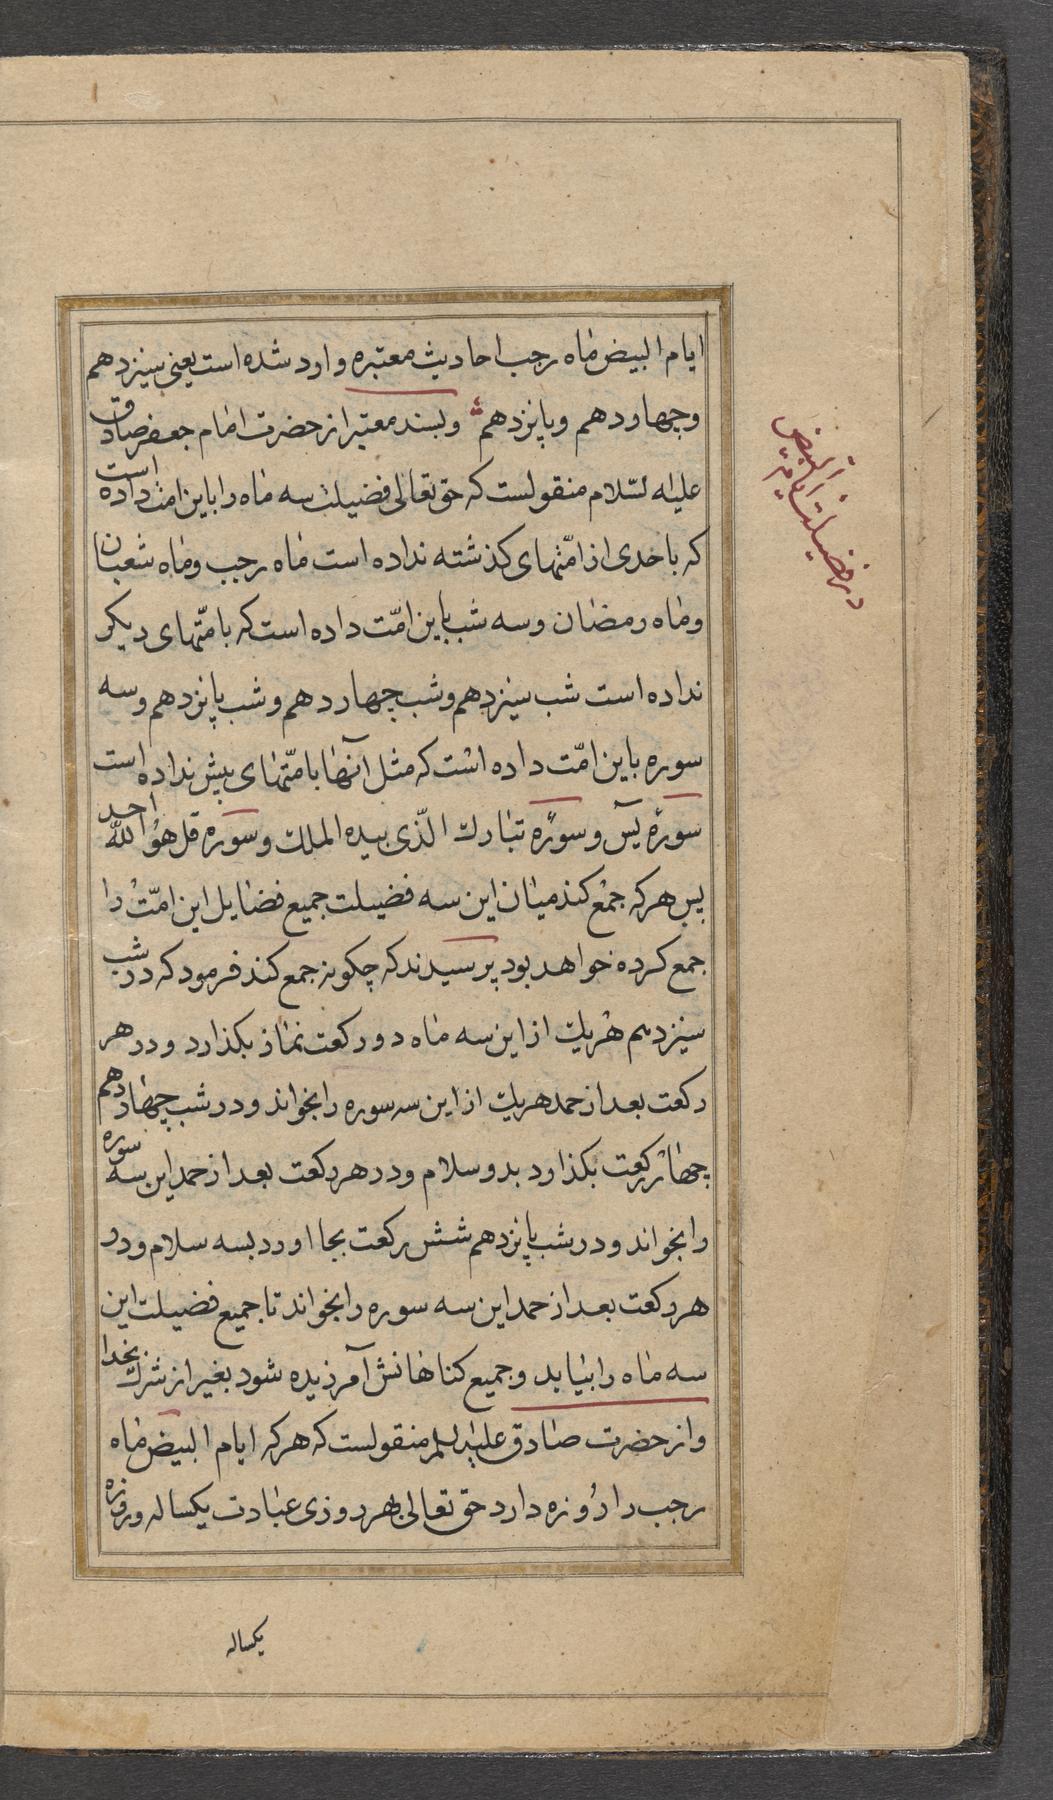 ایام البیض ماه رجب احادیث معتبره وارد شده است یعنی سیزدهم
وچهاردهم وپانزدهم وبسند معتبر از حضرت امام جعفر صادق
علیه السّلام منقولست که حق تعالی فضیلت سه ماه را باین امت داده است
که باحدی از امّتهای کذشته نداده است ماه رجب وماه شعبان
وماه رمضان وسه شب باین امّت داده است که بامّتهای دیکر
نداده است شب سیزدهم وشب چهاردهم وشب پانزدهم وسه
سوره باین امّت داده است که مثل آنها بامّتهای پیش نداده است
سورهٔ یس وسورهٔ تبارک الّذی بیده الملک وسوره قل هو الله احد
پس هرکه جمع کند میان این سه فضیلت جمیع فضایل این امّت را
جمع کرده خواهد بود پرسیدند که چکونه جمع کند فرمود که در شب
سیزدهم هریک از این سه ماه دو رکعت نماز بکذارد ودر هر
رکعت بعد از حمد هریک از این سه سوره را بخواند ودر شب چهاردهم
چهار رکعت بکذارد بدو سلام ودر هر رکعت بعد از حمد این سه سوره
را بخواند ودر شب پانزدهم شش رکعت بجا اورد بسه سلام ودر
هر رکعت بعد از حمد این سه سوره را بخواند تا جمیع فضیلت این
سه ماه را بیابد وجمیع کناهانش آمرزیده شود بغیر از شرک بخدا
واز حضرت صادق علیه السلم منقولست که هرکه ایام البیض ماه
رجب را روزه دارد حق تعالی بهر روزی عبادت یکساله وروزه
یکساله
در فضیلت ایام البیض